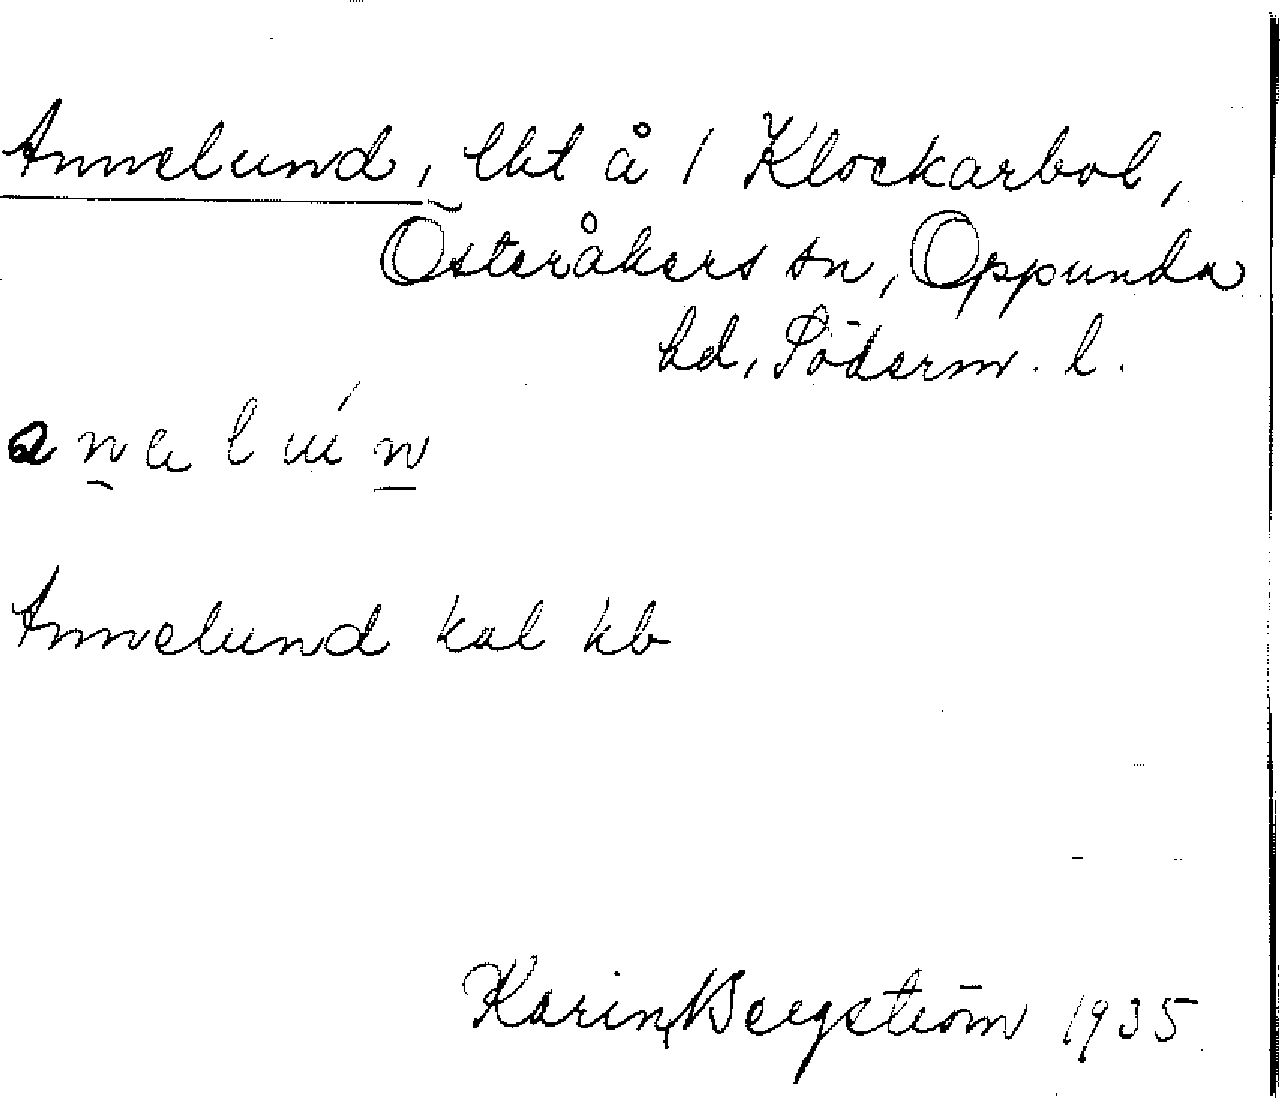 Annelund, lht å 1 Klockarbol,
Österåkers sn, Oppunda
hd, Söderm. l.
Annelund kal kb
Karin Bergström 1935